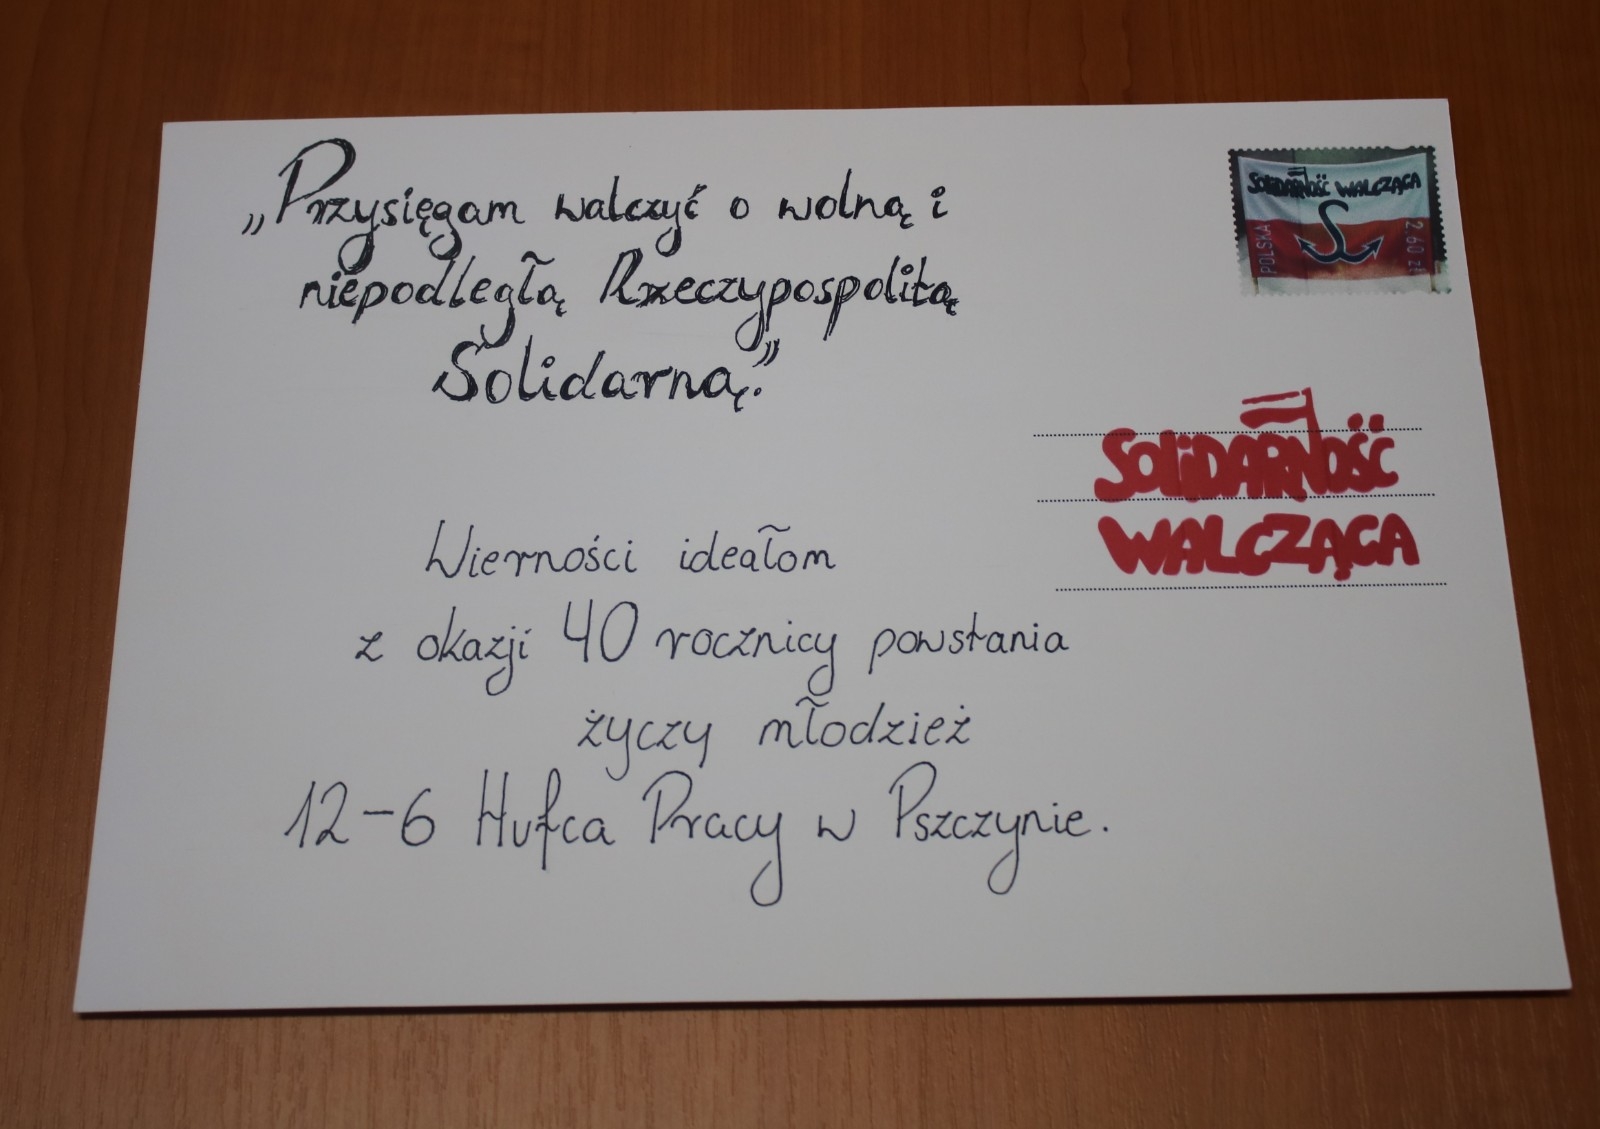 „Przysięgam walczyć o wolną i
niepodległą Rzeczypospolitą
Solidarną.”
SOLIDARNOŚĆ WALCZĄCA
POLSKA
2,60 zł
SOLIDARNOŚĆ
WALCZĄCA
Wierności ideałom
z okazji 40 rocznicy powstania
życzy młodzież
12-6 Hufca Pracy w Pszczynie.